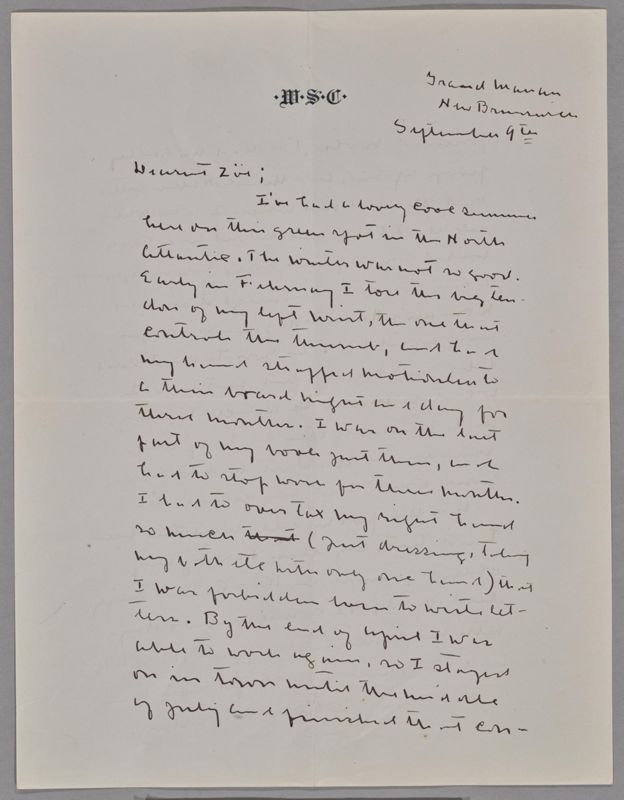 ·W·S·C·
Grand Manan
New Brunswick
September 9th
Dearest Zöe;
I've had a lovely cool summer
here on this green spot in the North
Atlantic. The winter was not so good.
Early in February I tore the big ten-
don of my left wrist, the one that
controls the thumb, and had
my hand strapped motionless to
a thin board night and day for
three months. I was on the last
part of my book just then, and
had to stop work for three months.
I had to over tax my right hand
so much that (just dressing, taking
my bath etc with only one hand) that
I was forbidden even to write let-
ters. By the end of April I was
able to work again, so I stayed
on in town until the middle
of July and finished that con-